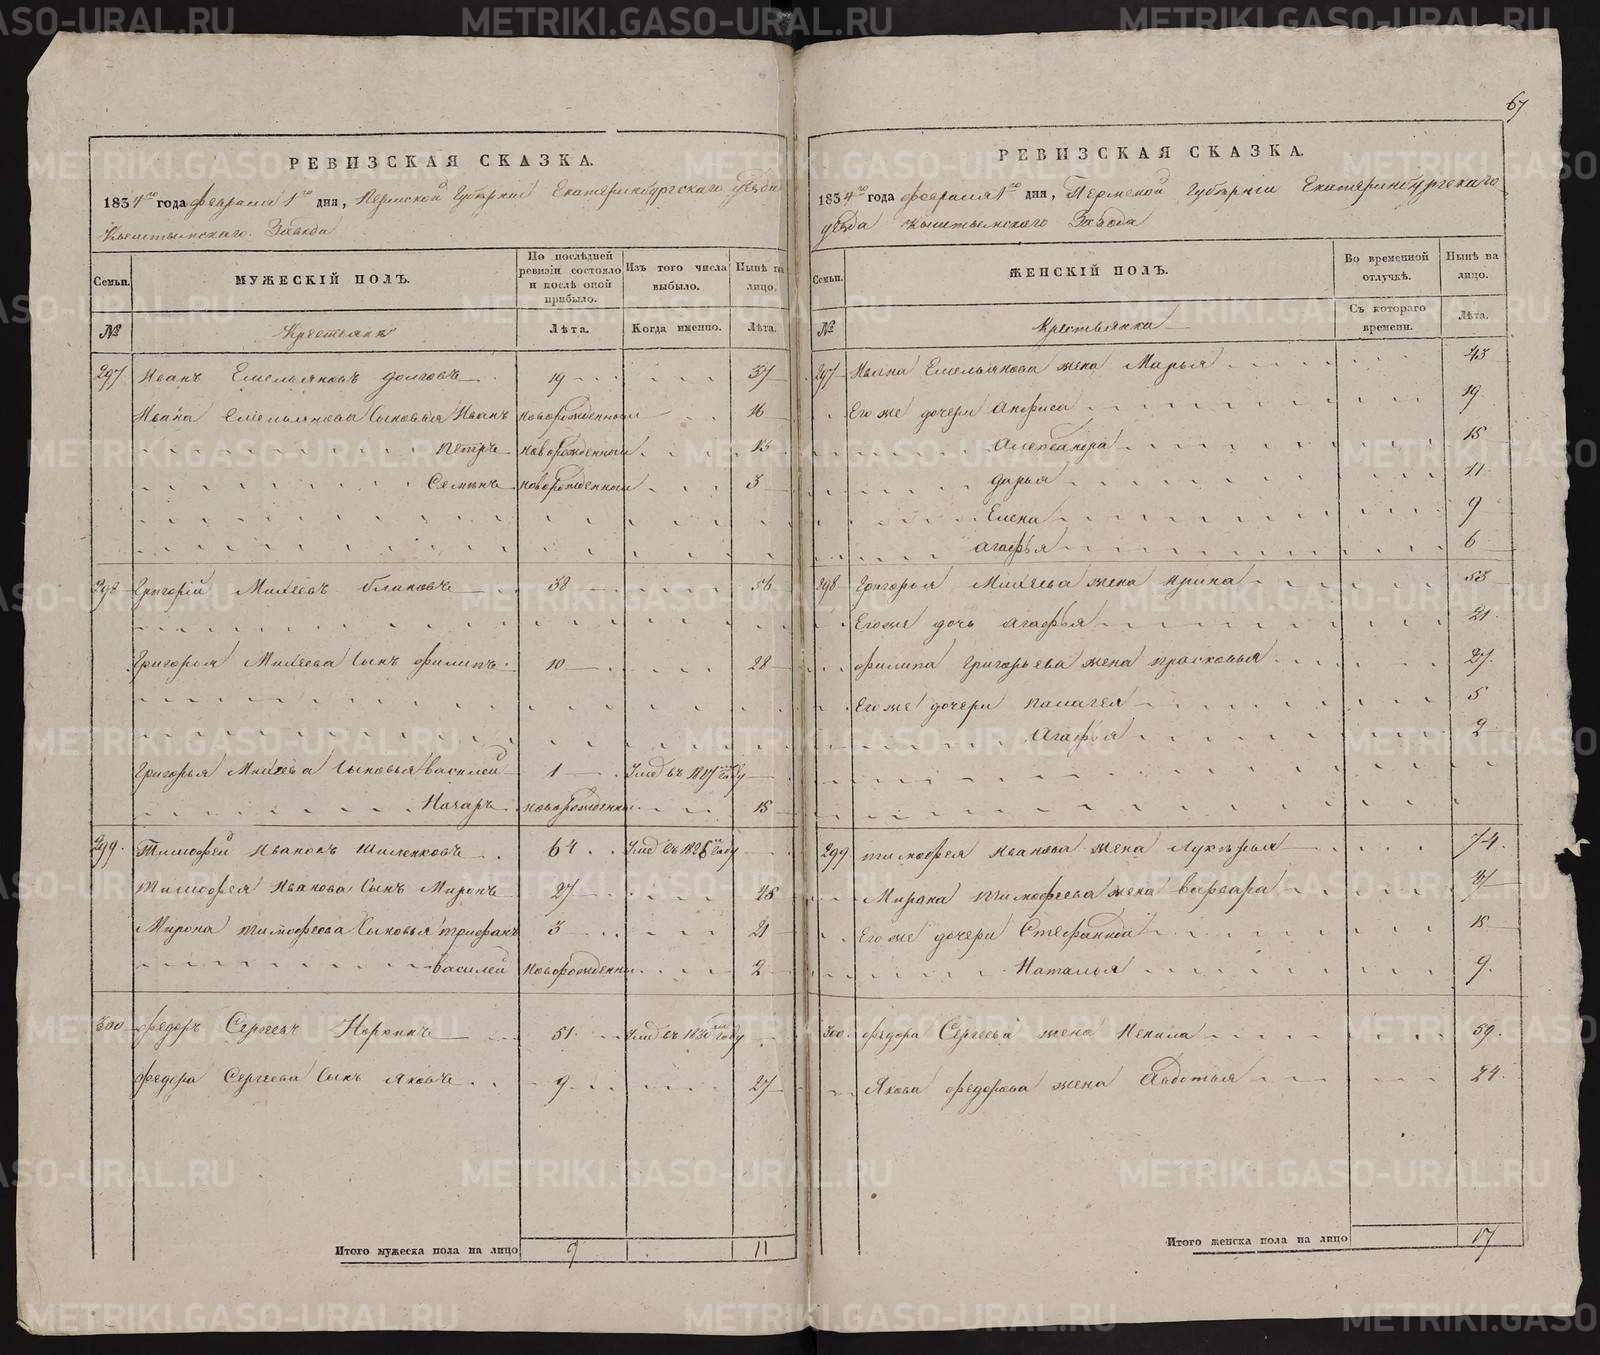 67
РЕВИЗСКАЯ СКАЗКА.
1834го года февраля 1го дня, Пермской Губернии Екатеринбургского уезда
Кыштымского Завода
Семьи. МУЖЕСКІЙ ПОЛЪ. По послѣдней ревизіи состояло и послѣ оной прибыло. Изъ того числа выбыло. Нынѣ на лицо.
№ Крестьянъ Лѣта. Когда именно. Лѣта.
297 Иванъ Емельяновъ Долговъ 19 37
Ивана Емельянова Сыновья Иванъ новорожденный 16
Петръ новорожденный 13
Семенъ новорожденный 3
298 Григорій Михеевъ Блиновъ 38 56
Григорья Михеева Сынъ Филипъ 10 28
Григорья Михеева Сыновья Василей 1 Умеръ въ 1827 году
Назаръ новорожденны 15
299 Тимофей Ивановъ 64 Умеръ въ 1826 году
Тимофея Иванова Сынъ Миронъ 27 45
Мирона Тимофеева Сыновья Трифонъ 3 21
Василей новорожденны 2
300 Федоръ Сергеевъ 51 Умеръ въ 1830 году
Федора Сергеева Сынъ Яковъ 9 27
Итого мужеска пола на лицо 9 11
РЕВИЗСКАЯ СКАЗКА.
1834го года февраля 1го дня, Пермской Губерніи Екатеринбургскаго
уезда Кыштымскаго Завода
Семьи. ЖЕНСКІЙ ПОЛЪ. Во временной отлучкѣ. Нынѣ на лицо.
№ Крестьянка Съ котораго времени. Лѣта.
297 Ивана Емельянова жена Марья 43
Его же дочери Анфиса 19
Александра 15
Дарья 11
Елена 9
Агафья 6
298 Григорья Михеева жена Ирина 53
Его же дочь Агафья 21
Филипа Григорьева жена Прасковья 27
Его же дочери Палагея 5
Агафья 2
299 Тимофея Иванова жена Лукерья 74
Мирона Тимофеева жена Варвара 37
Его же дочери Стефанида 15
Наталья 9
300 Федора Сергеева жена Ненила 59
Якова Федорова жена Авдотья 24
Итого женска пола на лицо 17